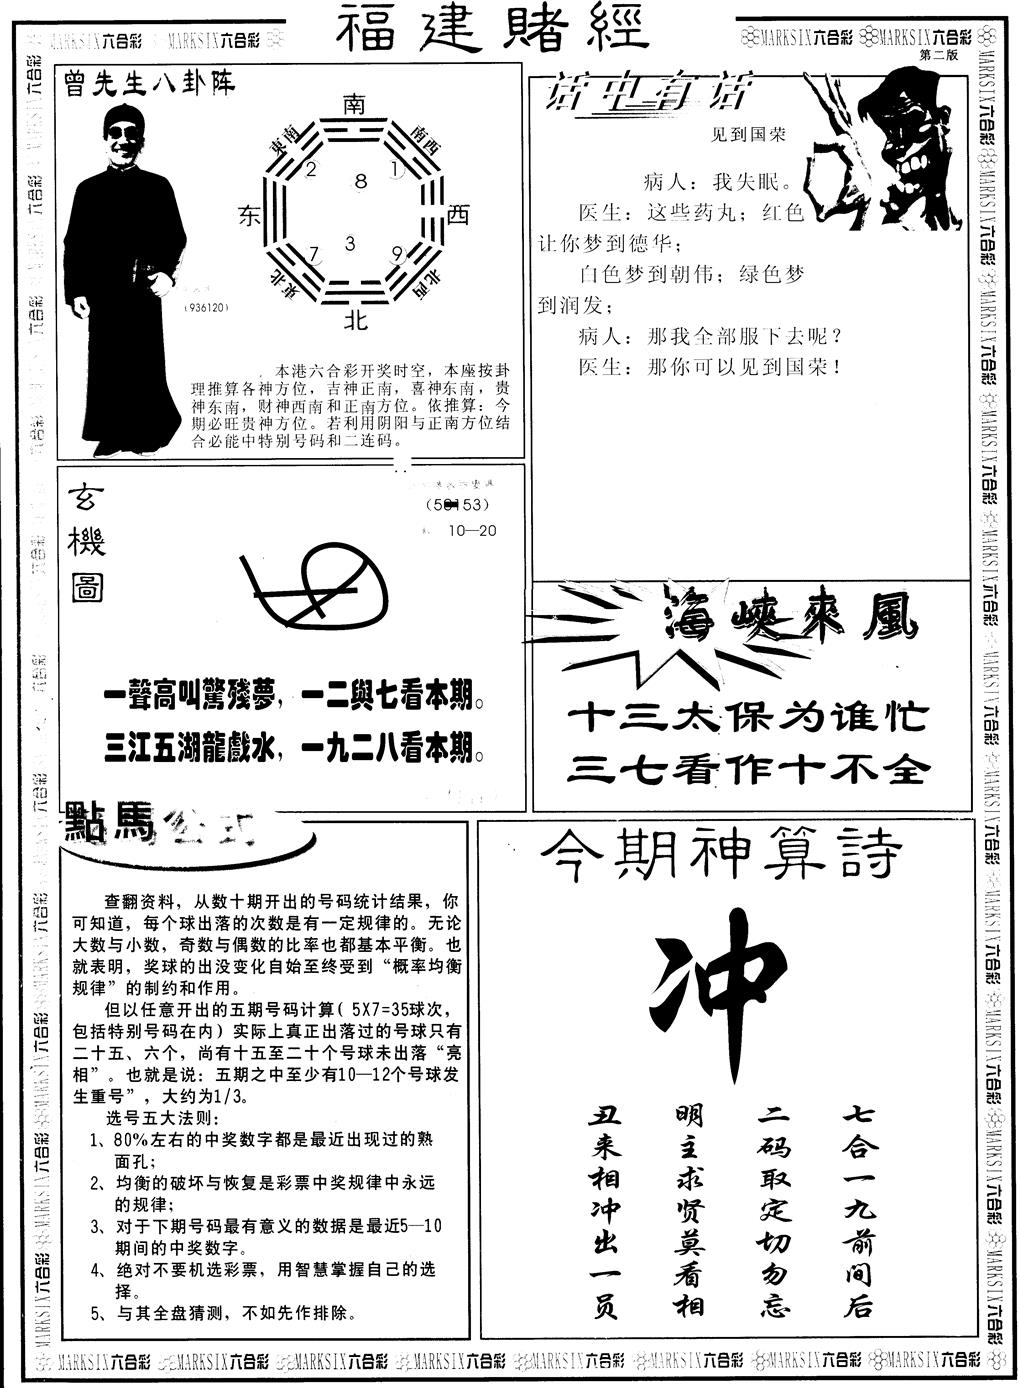 福建賭經
MARKSIX六合彩 MARKSIX六合彩
MARKSIX六合彩 MARKSIX六合彩
第二版
曾先生八卦阵
南
東南
南西
2
8
1
东
西
7
3
9
東北
北西
北
(936120)
本港六合彩开奖时空，本座按卦
理推算各神方位，吉神正南，喜神东南，贵
神东南，财神西南和正南方位。依推算：今
期必旺贵神方位。若利用阴阳与正南方位结
合必能中特别号码和二连码。
话中有话
见到国荣
病人：我失眠。
医生：这些药丸；红色
让你梦到德华；
白色梦到朝伟；绿色梦
到润发；
病人：那我全部服下去呢？
医生：那你可以见到国荣！
玄機圖
10—20
一聲高叫驚殘夢，一二與七看本期。
三江五湖龍戲水，一九二八看本期。
海峽來風
十三太保为谁忙
三七看作十不全
點馬公式
查翻资料，从数十期开出的号码统计结果，你
可知道，每个球出落的次数是有一定规律的。无论
大数与小数，奇数与偶数的比率也都基本平衡。也
就表明，奖球的出没变化自始至终受到“概率均衡
规律”的制约和作用。
但以任意开出的五期号码计算( 5X7=35球次，
包括特别号码在内）实际上真正出落过的号球只有
二十五、六个，尚有十五至二十个号球未出落“亮
相”。也就是说：五期之中至少有10—12个号球发
生重号”，大约为1/3。
选号五大法则：
1、80%左右的中奖数字都是最近出现过的熟
面孔；
2、均衡的破坏与恢复是彩票中奖规律中永远
的规律；
3、对于下期号码最有意义的数据是最近5—10
期间的中奖数字。
4、绝对不要机选彩票，用智慧掌握自己的选
择。
5、与其全盘猜测，不如先作排除。
今期神算詩
冲
七合一九前间后
二码取定切勿忘
明主求贤莫看相
丑来相冲出一员
MARKSIX六合彩 MARKSIX六合彩 MARKSIX六合彩 MARKSIX六合彩 MARKSIX六合彩 MARKSIX六合彩 MARKSIX六合彩 MARKSIX六合彩